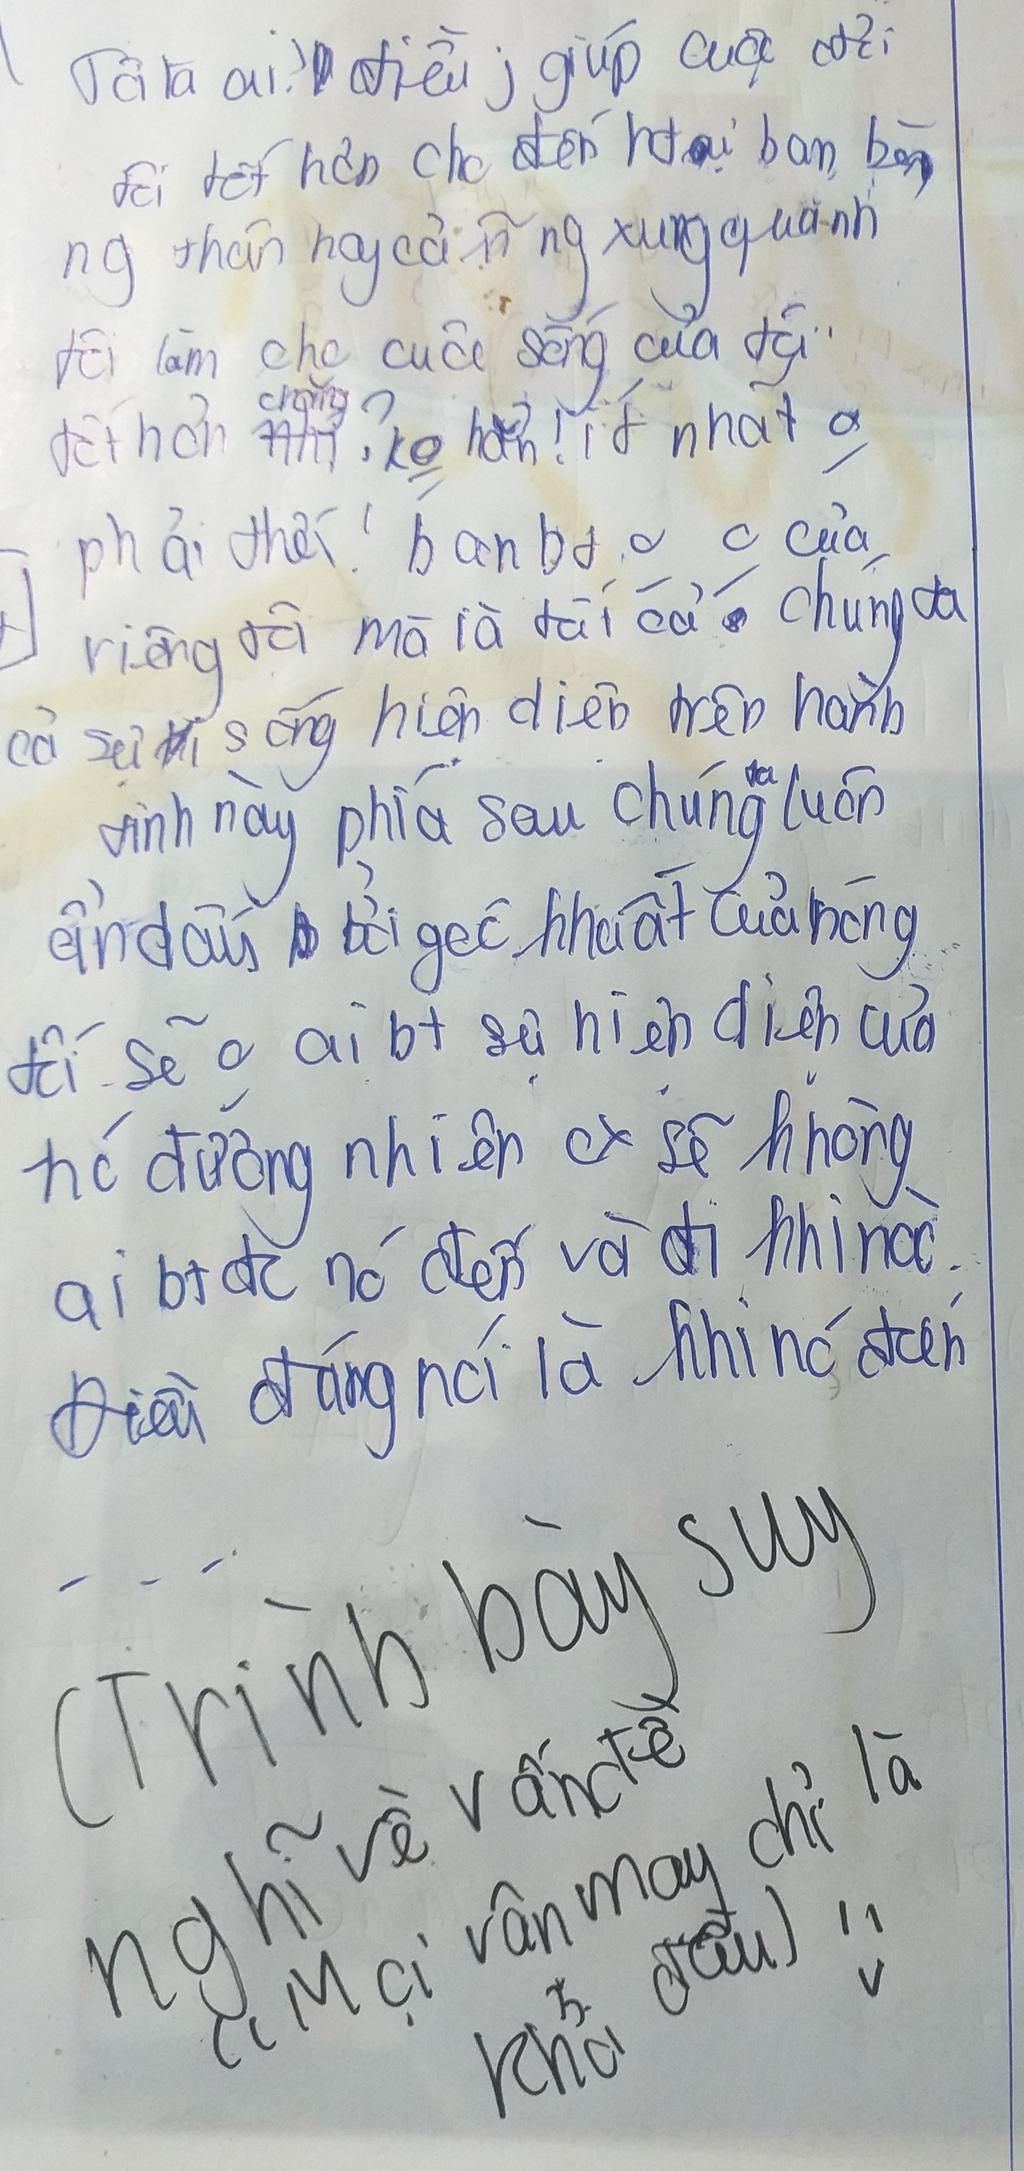 Tôi là ai? điều j giúp cuộc đời
tôi tốt hơn cho đến htại bạn bè,
ng thân hay cả n~ ng xung quanh
tôi làm cho cuộc sống của tôi
tốt hơn chăng? ko hẳn! ít nhất o
phải thế! bạn bt o o của
riêng tôi mà là tất cả chúng ta
cả sự sống hiện diện trên hành
tinh này phía sau chúng ta luôn
ẩn dấu bởi góc khuất của bóng
tối sẽ o ai bt sự hiện diện của
nó đương nhiên cx sẽ không
ai bt đc nó đến và đi khi nào.
Điều đáng nói là khi nó đến
- - -
(Trình bày suy
nghĩ về vấn đề
"Mọi vận may chỉ là
khởi đầu)"